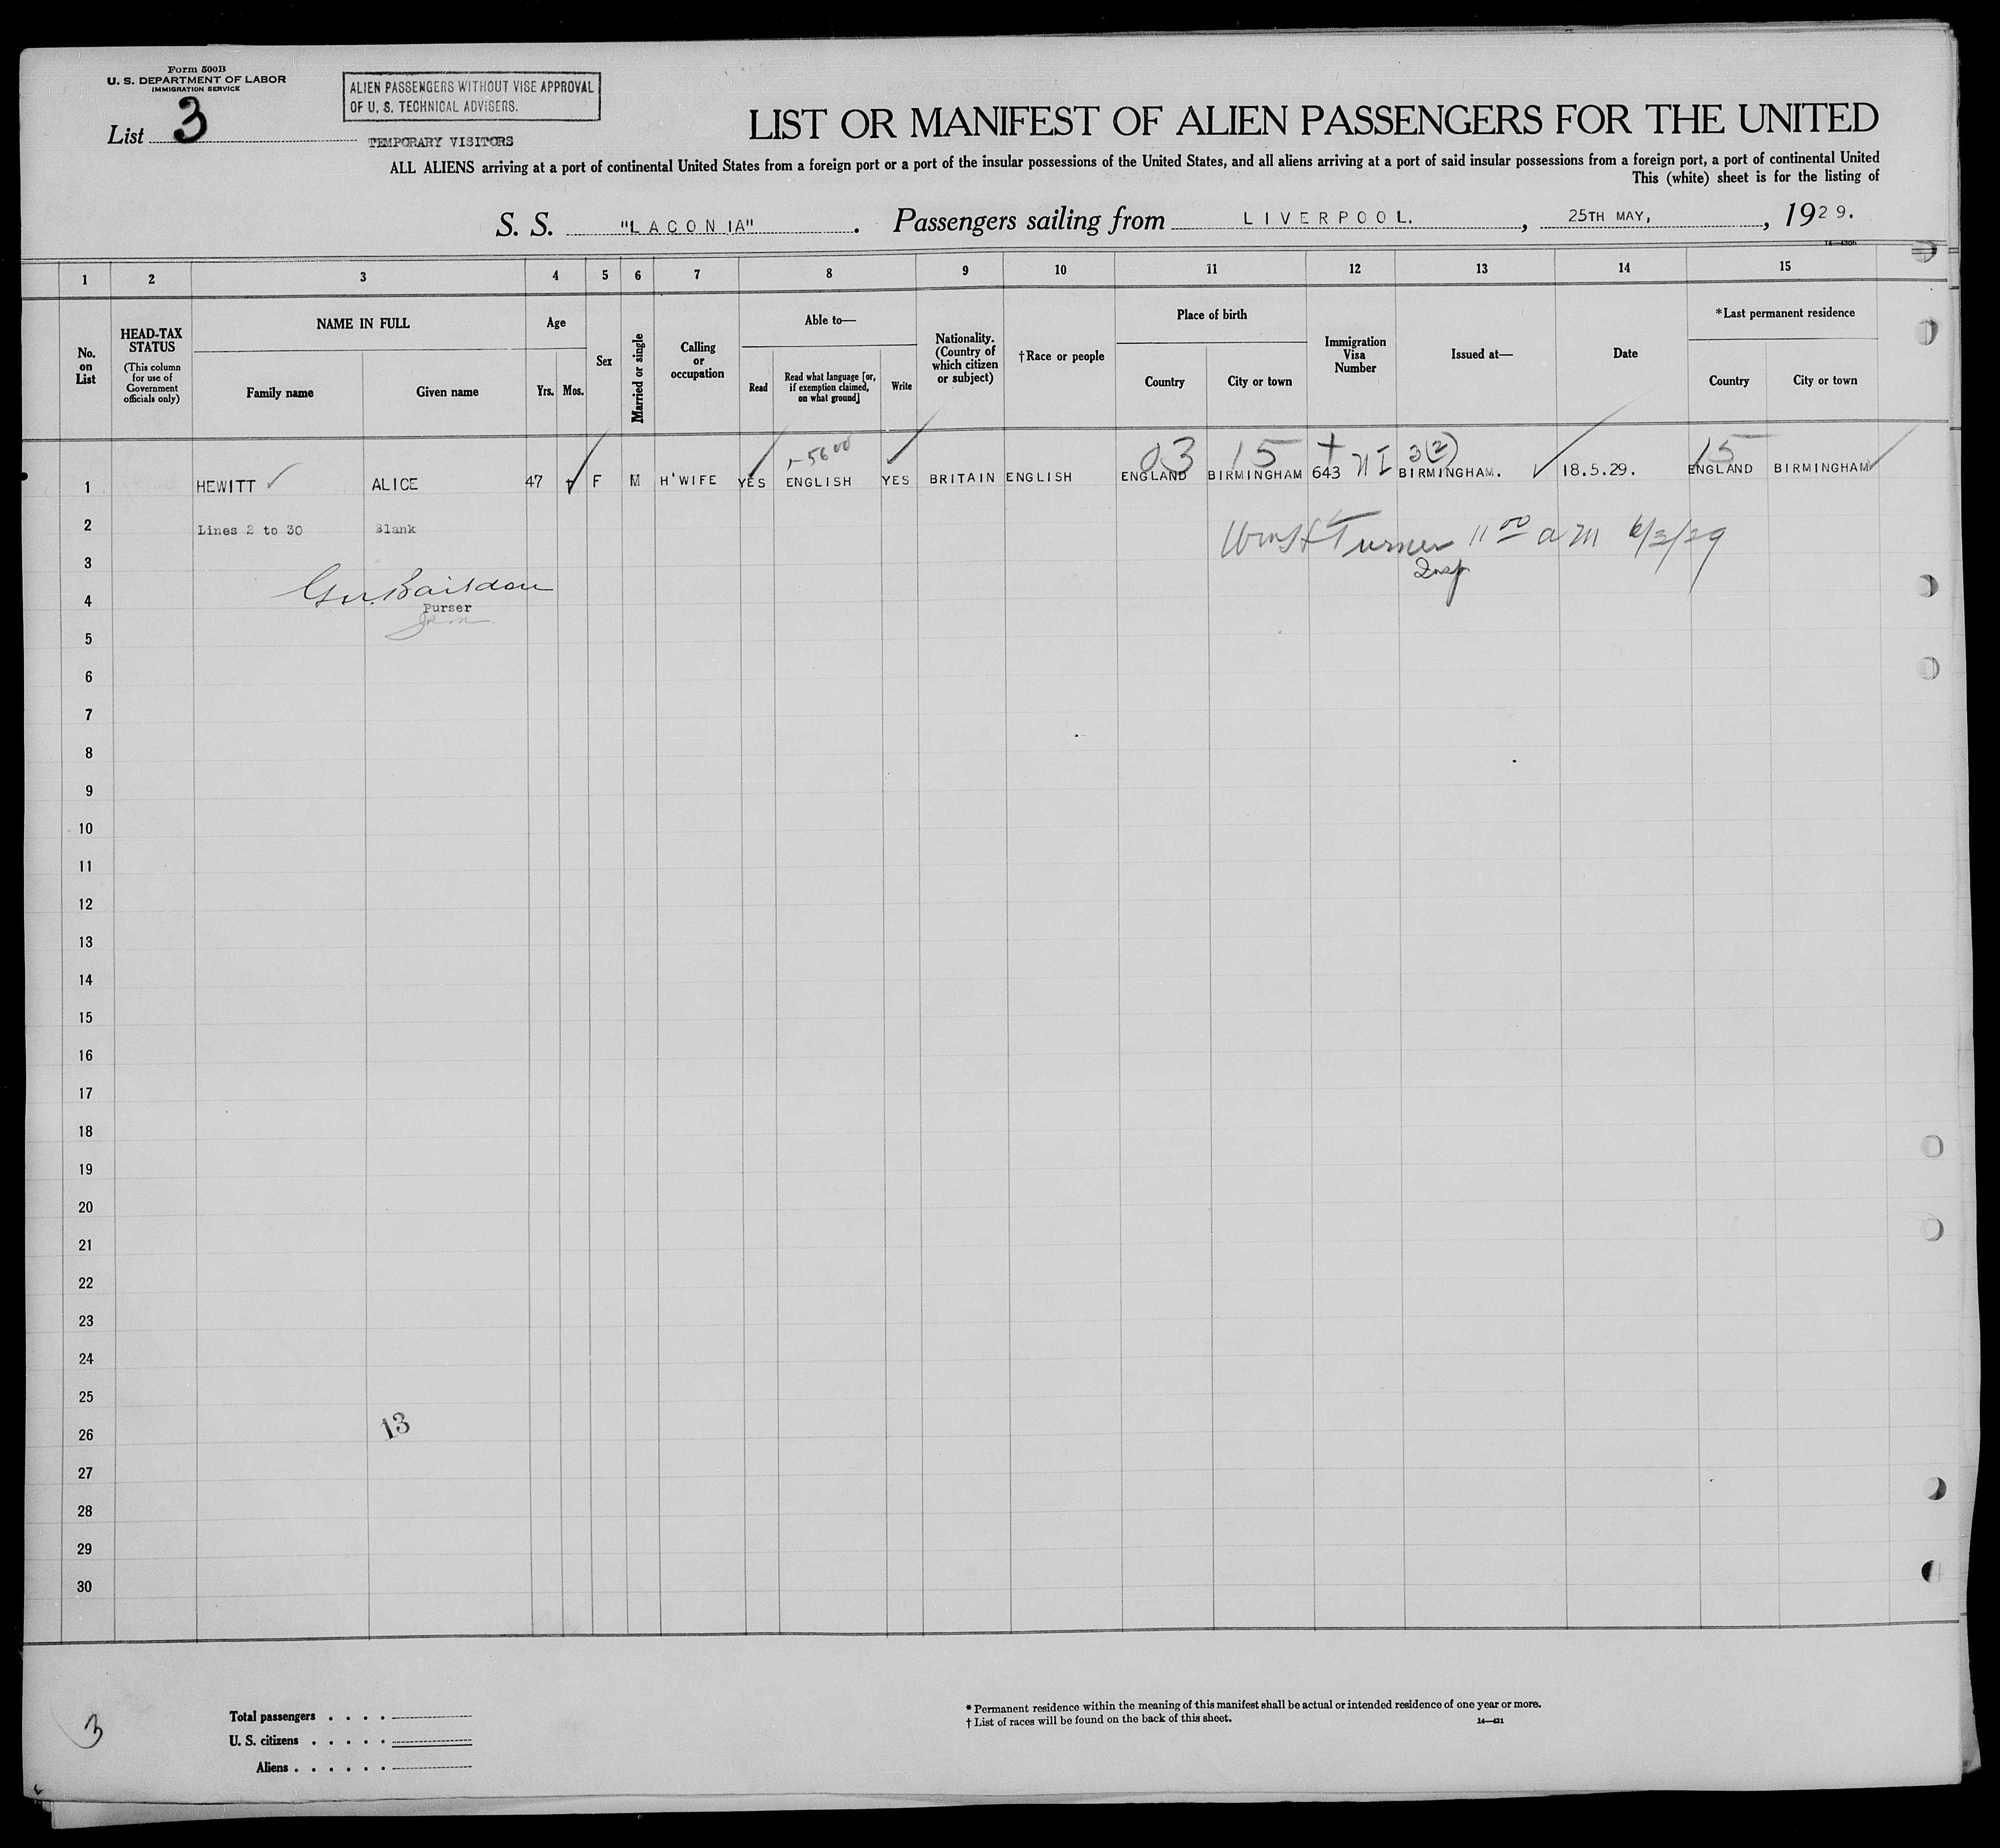 Form 500B
U. S. DEPARTMENT OF LABOR
IMMIGRATION SERVICE
List 3
ALIEN PASSENGERS WITHOUT VISE APPROVAL
OF U. S. TECHNICAL ADVISERS.
TEMPORARY VISITORS
LIST OR MANIFEST OF ALIEN PASSENGERS FOR THE UNITED
ALL ALIENS arriving at a port of continental United States from a foreign port or a port of the insular possessions of the United States, and all aliens arriving at a port of said insular possessions from a foreign port, a port of continental United
This (white) sheet is for the listing of
S. S. "LACONIA". Passengers sailing from LIVERPOOL., 25TH MAY, , 1929.
1 2 3 4 5 6 7 8 9 10 11 12 13 14 15
No. on List
HEAD-TAX STATUS
(This column for use of Government officials only)
NAME IN FULL
Family name Given name
Age
Yrs. Mos.
Sex
Married or single
Calling or occupation
Able to—
Read
Read what language [or, if exemption claimed, on what ground]
Write
Nationality. (Country of which citizen or subject)
†Race or people
Place of birth
Country City or town
Immigration Visa Number
Issued at—
Date
*Last permanent residence
Country City or town
03 15 3(2) 15
1 HEWITT ALICE 47 F M H'WIFE YES ENGLISH YES BRITAIN ENGLISH ENGLAND BIRMINGHAM 643 BIRMINGHAM. 18.5.29. ENGLAND BIRMINGHAM
2 Lines 2 to 30 Blank
Turner 11 00 a m 6/3/29
Insp
3
4
Purser
5
6
7
8
9
10
11
12
13
14
15
16
17
18
19
20
21
22
23
24
25
26
13
27
28
29
30
3
Total passengers . . . .
U. S. citizens . . . . .
Aliens . . . . . .
* Permanent residence within the meaning of this manifest shall be actual or intended residence of one year or more.
† List of races will be found on the back of this sheet.
14—431